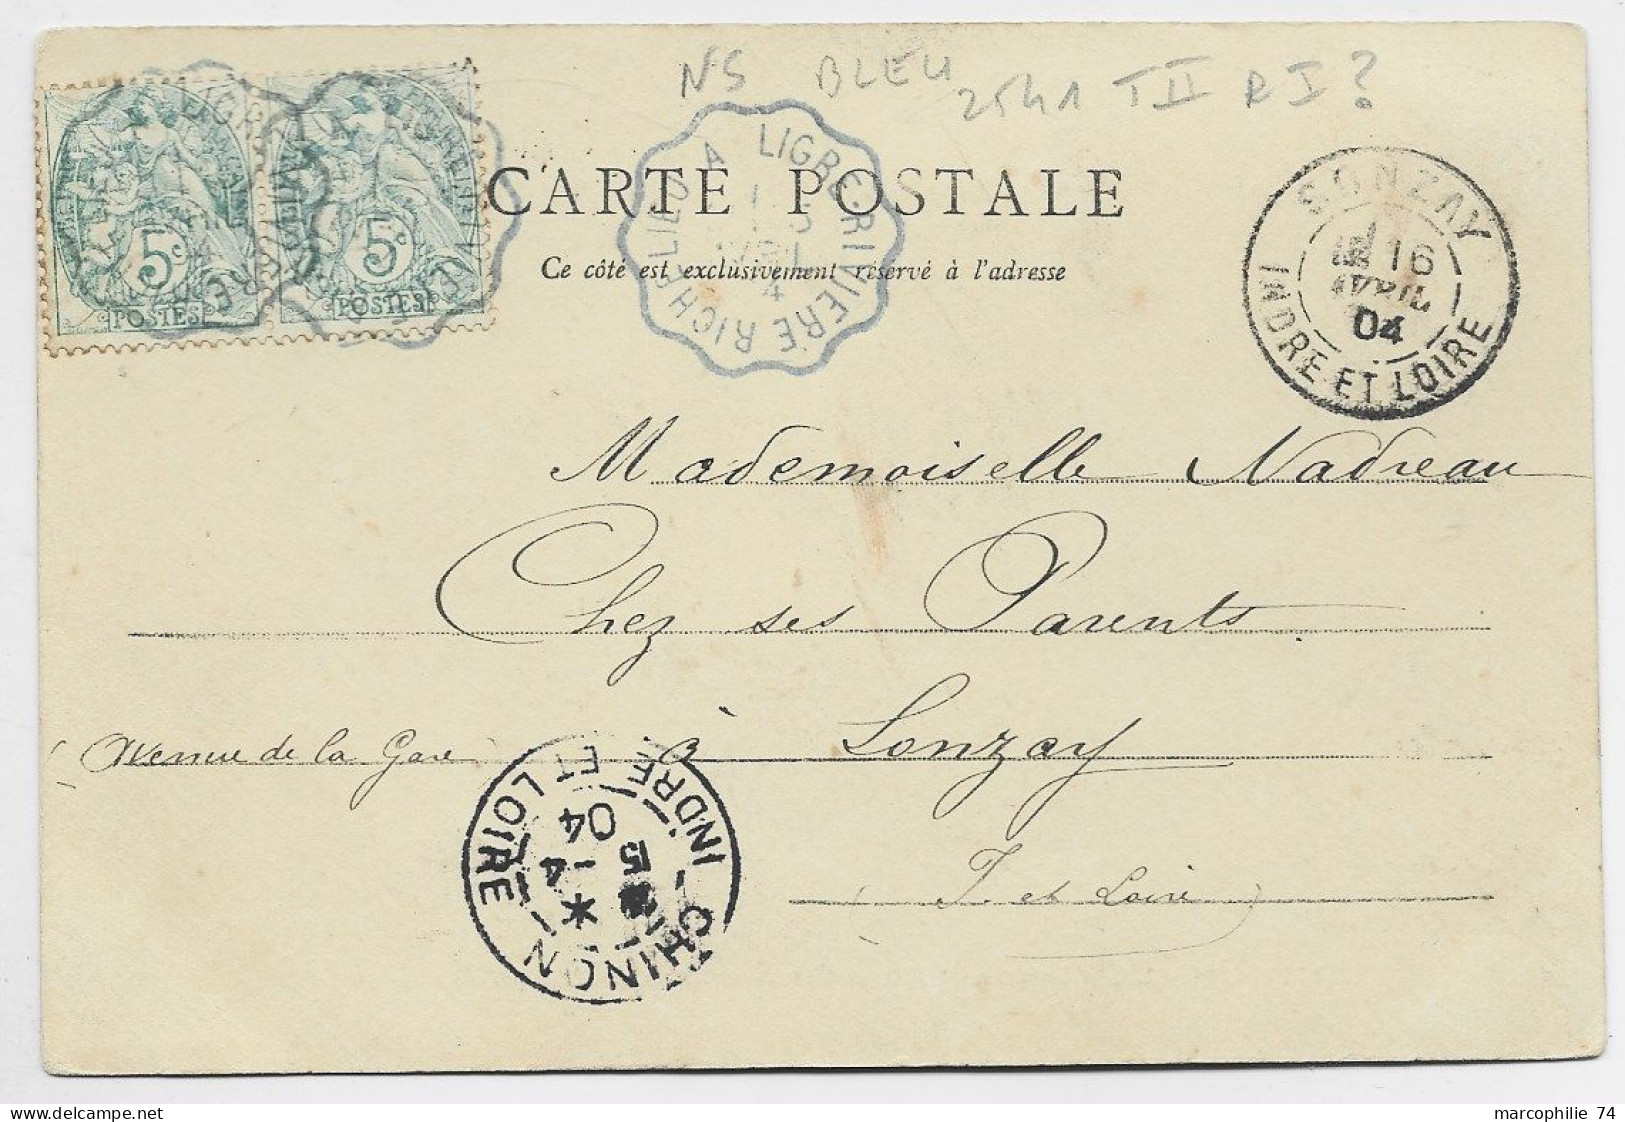 NS BLEU 2541 TII R I ?
CARTE POSTALE
Ce côté est exclusivement réservé à l'adresse
5c
POSTES
5c
POSTES
RICHELIEU A LIGRE-RIVIERE
SONZAY
16
AVRIL
04
INDRE ET LOIRE
Mademoiselle Nadreau
Chez ses Parents
à Sonzay
(Avenue de la Gare)
(I. et Loire)
CHINON
4
04
INDRE ET LOIRE
marcophilie 74